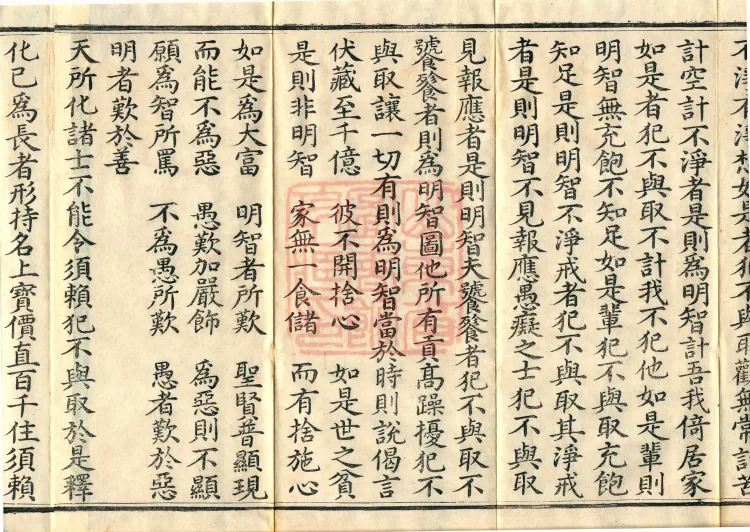 不淨不淨想如是者犯不與取無常計苦
計空計不淨者是則為明智計吾我倚居家
如是者犯不與取不計我不犯他如是輩則
明智無充飽不知足如是輩犯不與取充飽
知足是則明智不淨戒者犯不與取其淨戒
者是則明智不見報應愚癡之士犯不與取
見報應者是則明智夫饕餮者犯不與取不
饕餮者則為明智圖他所有貢高躁擾犯不
與取讓一切有則為明智當於時則說偈言
伏藏至千億　彼不開捨心　如是世之貧
是則非明智　家無一食儲　而有捨施心
如是為大富　明智者所歎　聖賢普顯現
而能不為惡　愚歎加嚴飾　為惡則不顯
願為智所罵　不為愚所歎　愚者歎於惡
明者歎於善
天所化諸士不能令須賴犯不與取於是釋
化已為長者形持名上寶價直百千住須賴